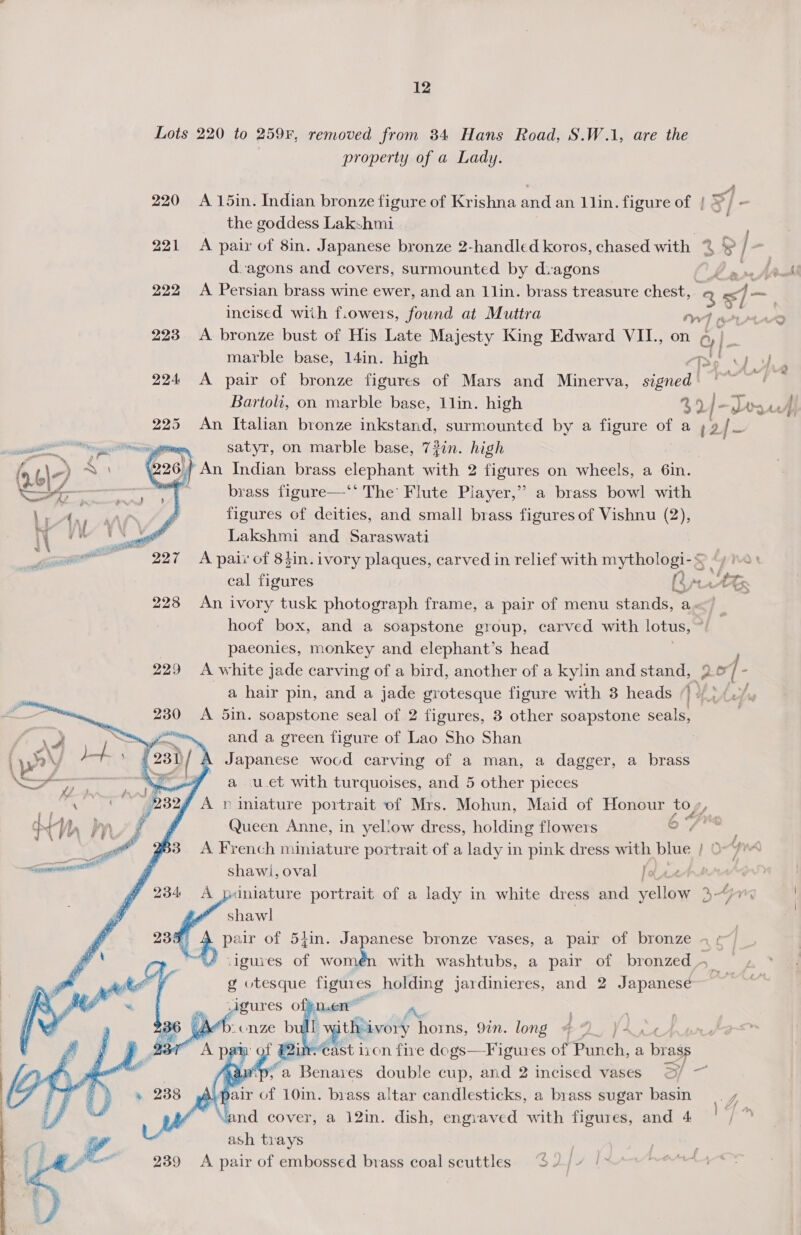 12
Lots 220 to 259F, removed from 34 Hans Road, S.W.1, are the
property of a Lady.
220 A 15in. Indian bronze figure of Krishna and an 11in. figure of
the goddess Lakshmi
221 A pair of 8in. Japanese bronze 2-handled koros, chased with
dragons and covers, surmounted by dragons
222 A Persian brass wine ewer, and an 11in. brass treasure chest,
incised with flowers, found at Muttra
223 A bronze bust of His Late Majesty King Edward VII., on
marble base, 14in. high
224 A pair of bronze figures of Mars and Minerva, signed
Bartoli, on marble base, 11in. high
225 An Italian bronze inkstand, surmounted by a figure of a
satyr, on marble base, 7¾in. high
226 An Indian brass elephant with 2 figures on wheels, a 6in.
brass figure—“ The Flute Player,” a brass bowl with
figures of deities, and small brass figures of Vishnu (2),
Lakshmi and Saraswati
227 A pair of 8½in. ivory plaques, carved in relief with mythologi-
cal figures
228 An ivory tusk photograph frame, a pair of menu stands, a
hoof box, and a soapstone group, carved with lotus,
paeonies, monkey and elephant’s head
229 A white jade carving of a bird, another of a kylin and stand, 20/-
a hair pin, and a jade grotesque figure with 3 heads
230 A 5in. soapstone seal of 2 figures, 3 other soapstone seals,
and a green figure of Lao Sho Shan
231 A Japanese wood carving of a man, a dagger, a brass
a u et with turquoises, and 5 other pieces
232 A miniature portrait of Mrs. Mohun, Maid of Honour to
Queen Anne, in yellow dress, holding flowers
233 A French miniature portrait of a lady in pink dress with blue
shawl, oval
234 A miniature portrait of a lady in white dress and yellow
shawl
235 A pair of 5¼in. Japanese bronze vases, a pair of bronze
figures of women with washtubs, a pair of bronzed
grotesque figures holding jardinieres, and 2 Japanese
figures of men
236 A bronze bull with ivory horns, 9in. long
237 A pair of 12in. cast iron fire dogs—Figures of Punch, a brass
lamp, a Benares double cup, and 2 incised vases
238 A pair of 10in. brass altar candlesticks, a brass sugar basin
and cover, a 12in. dish, engraved with figures, and 4
ash trays
239 A pair of embossed brass coal scuttles